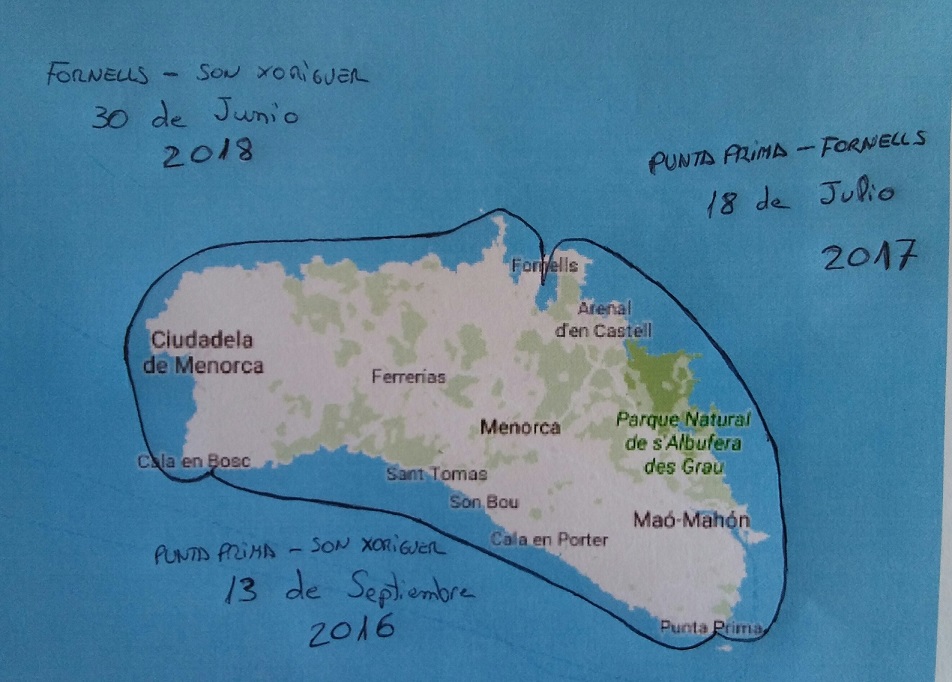 FORNELLS - SON XORIGUER
30 de Junio
2018
PUNTA PRIMA - FORNELLS
18 de Julio
2017
Fornells
Arenal
d'en Castell
Ciudadela
de Menorca
Ferrerías
Menorca
Parque Natural
de s'Albufera
des Grau
Cala en Bosc
Sant Tomas
Son Bou
Maó-Mahón
Cala en Porter
PUNTA PRIMA - SON XORIGUER
13 de Septiembre
2016
Punta Prima